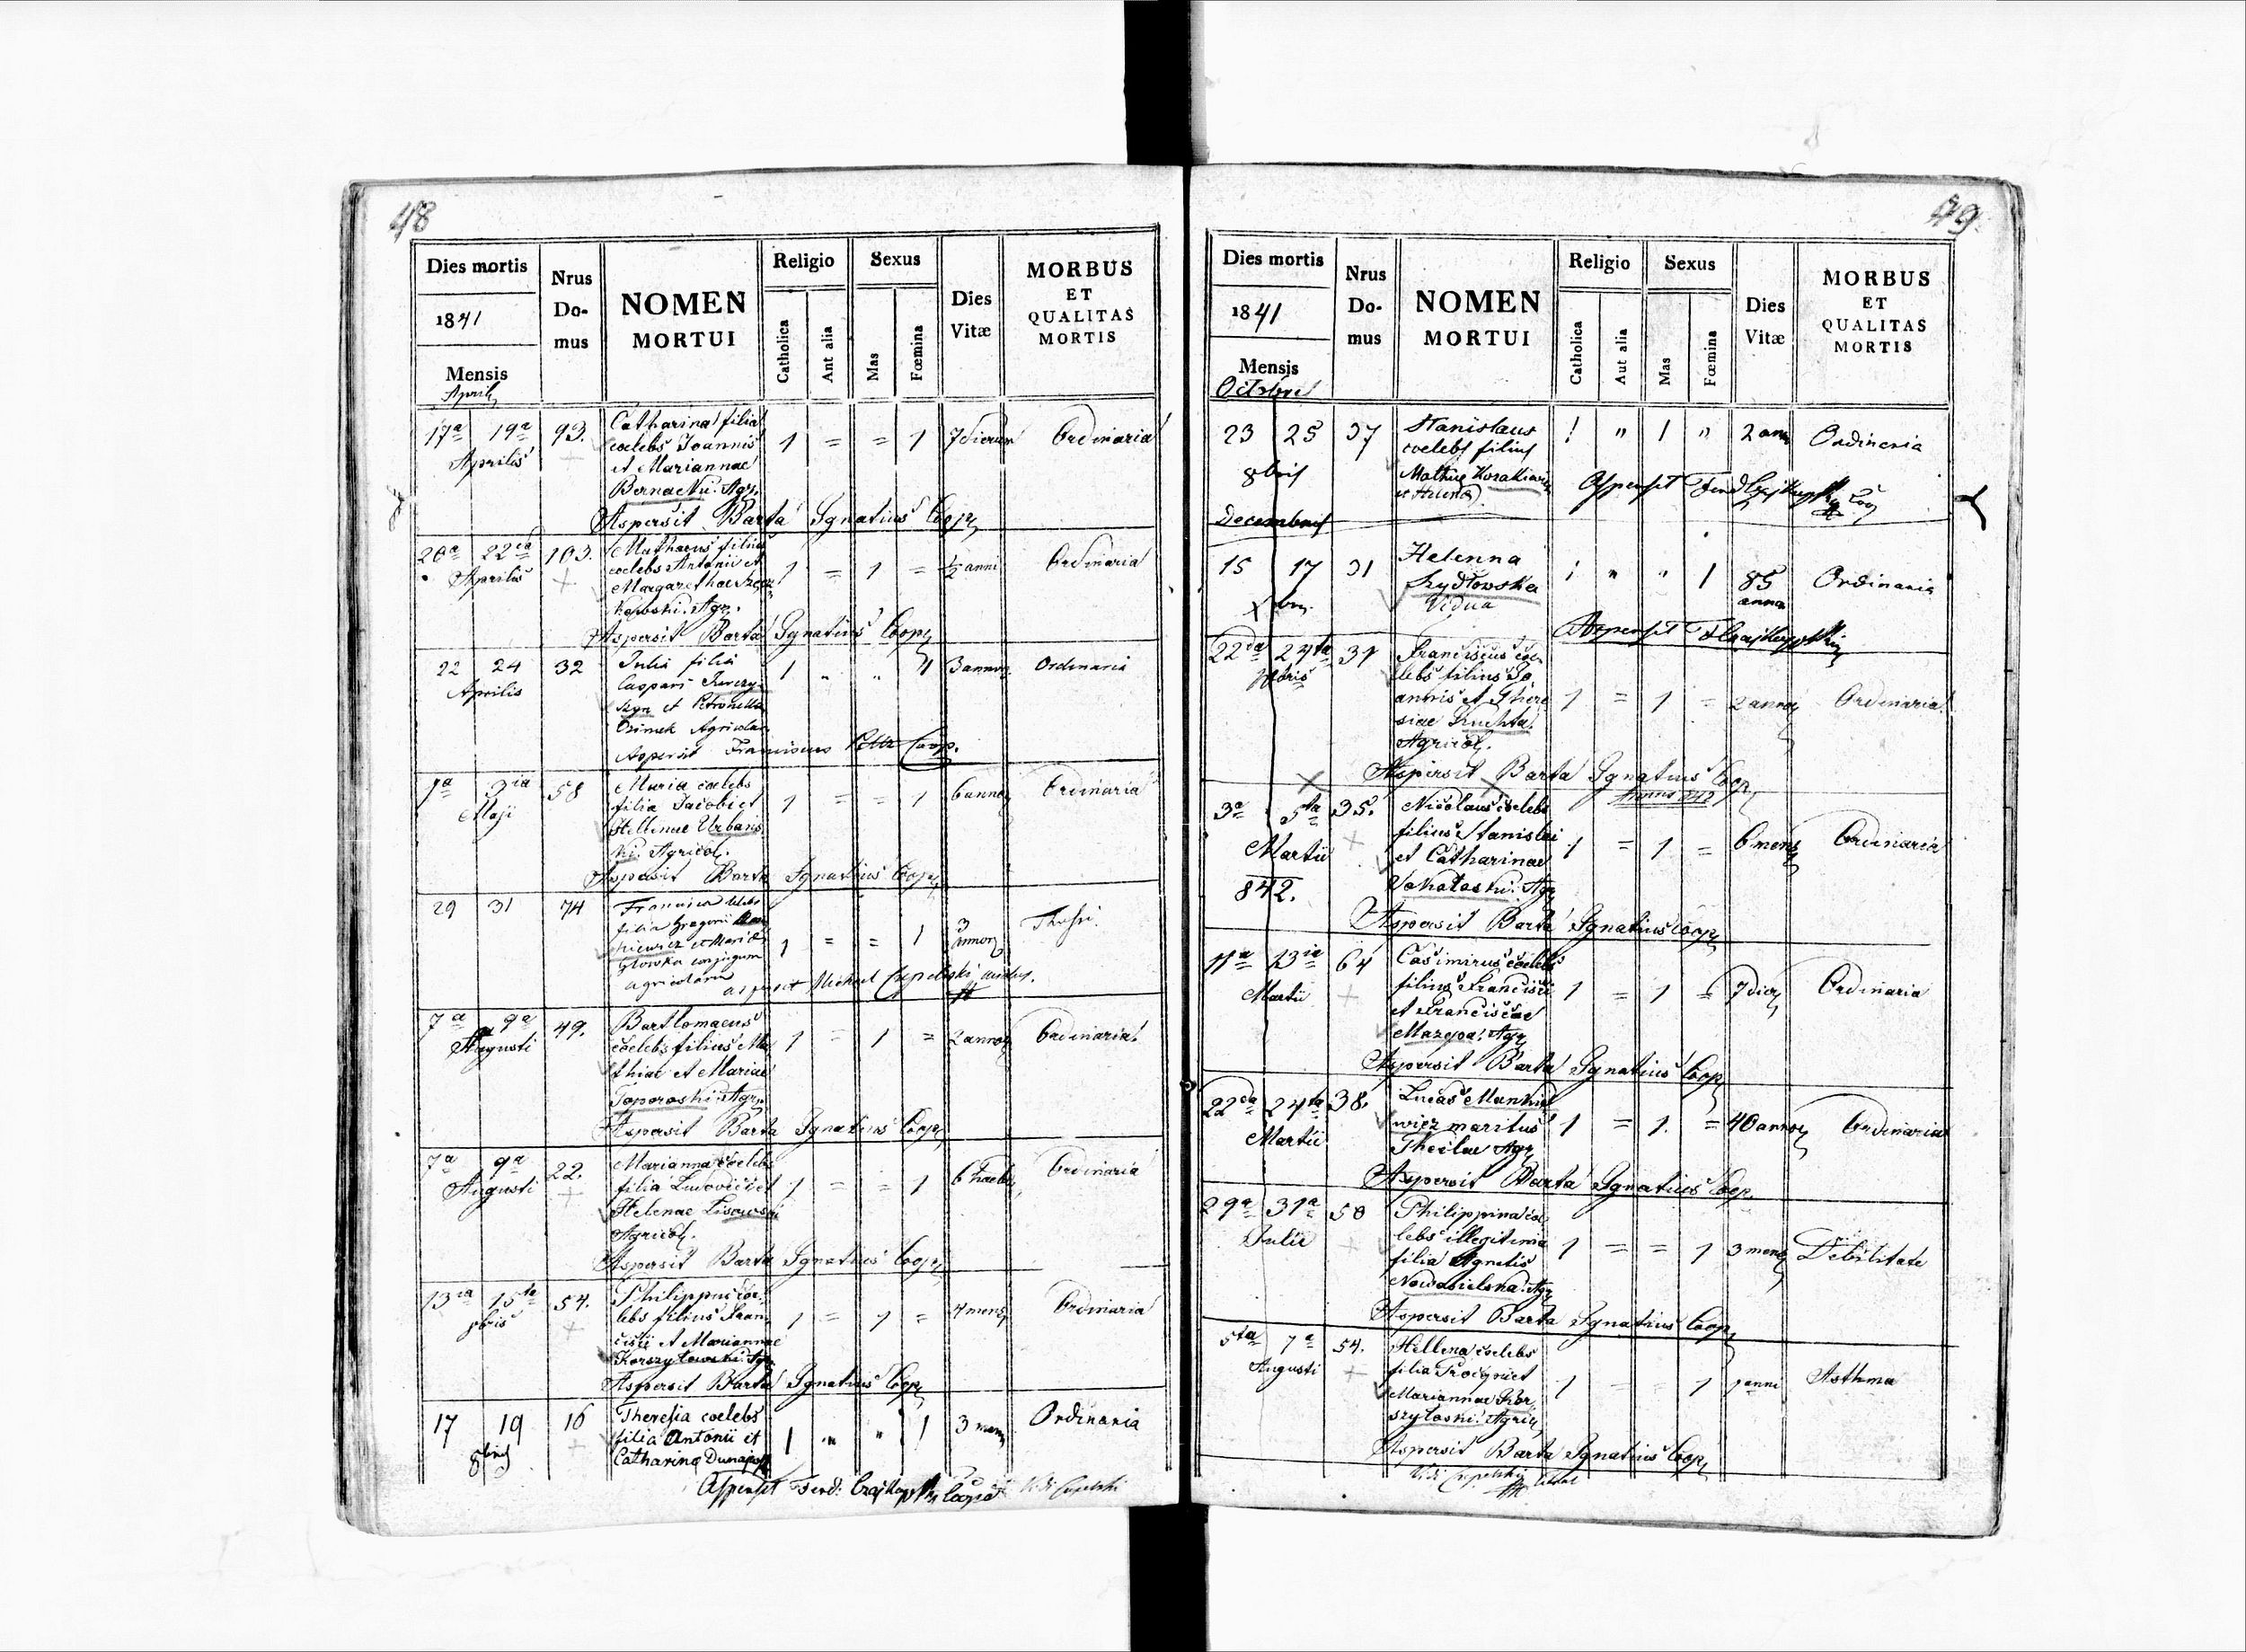 48
Dies mortis
1841
Mensis
Aprilis
Nrus Do- mus
NOMEN MORTUI
Religio
Catholica
Aut alia
Sexus
Mas
Fœmina
Dies Vitæ
MORBUS ET QUALITAS MORTIS
17a 19a 93. Catharina filia 1 = = 1 7 dierum Ordinaria
Aprilis coelebs Joannis
et Mariannae
Bernacki. Agr.
Aspersit Barta Ignatius Coop.
20a 22da 103. Mathaeus filius 1 = 1 = ½ anni Ordinaria
Aprilis coelebs Antonii et
Margarethae
Agr.
Aspersit Barta Ignatius Coop.
22 24 32 Julia filia 1 " " 1 3 annor. Ordinaria
Aprilis Caspari
et Petronella
Ozimek Agricolar.
Aspersit Franciscus Coop.
1a 3ia 58 Maria coelebs 1 = = 1 6 annor. Ordinaria
Maji filia Jacobi et
Hellenae Urbans
ki. Agricol.
Aspersit Barta Ignatius Coop.
29 31 74 Francisca coelebs 1 = = 1 3 annor.
filia Gregorii
kiewicz et Maria
conjugum
agricolarum
aspersit Michael Czepelski
7a 9a 49. Bartlomaeus 1 = 1 = 2 annor. Ordinaria
Augusti coelebs filius Ma
thiae et Mariae
Toporoski. Agr.
Aspersit Barta Ignatius Coop.
7a 9a 22. Marianna coelebs 1 = = 1 6 Ordinaria
Augusti filia Ludovici et
Helenae Lisowski
Agricol.
Aspersit Barta Ignatius Coop.
13ia 15ta 54. Philippus coe- 1 = 1 = 4 mens. Ordinaria
8bris lebs filius Fran
cisci et Mariannae
Korszyłowski. Agr.
Aspersit Barta Ignatius Coop.
17 19 16 Theresia coelebs 1 " " 1 3 mens. Ordinaria
8bris filia Antonii et
Catharina
Aspersit Ferd:
Vidi Czepelski
49.
Dies mortis
1841
Mensis
Octobris
Nrus Do- mus
NOMEN MORTUI
Religio
Catholica
Aut alia
Sexus
Mas
Fœmina
Dies Vitæ
MORBUS ET QUALITAS MORTIS
23 25 37 Stanislaus 1 " 1 " 2 ann. Ordineria
8bris coelebs filius
Mathiæ
et Helena
Aspersit Ferd
Decembris
15 17 31 Helenna 1 " " 1 85 Ordinaria
Szydłowska anno
Xbris Vidua
Aspersit
22da 24ta 31 Franciscus coe- 1 = 1 = 2 annor. Ordinaria
lebs filius Jo
annis et There
siae Kuchta.
Agricol.
Aspersit Barta Ignatius Coop.
Annus 842
3a 5ta 35. Nicolaus coelebs 1 = 1 = 6 mens. Ordinaria
Martii filius Stanislai
et Catharinae
842. Agr.
Aspersit Barta Ignatius Coop.
11a 13ia 64 Casimirus coelebs 1 = 1 = 7 dier. Ordinaria
Martii filius Francisci
et Franciscae
Mazepa. Agr.
Aspersit Barta Ignatius Coop.
22da 24ta 38. Lucas Mankie 1 = 1. = 40 annor. Ordinaria
Martii wicz maritus
Theclae Agr.
Aspersit Barta Ignatius Coop.
29a 31a 50 Philippina coe 1 = = 1 3 mens. Debilitate
Julii lebs illegitima
filia Agnetis
Nowosielska. Agr.
Aspersit Barta Ignatius Coop.
5ta 7a 54. Hellena coelebs 1 = = 1 1 anni Asthma
Augusti filia
Mariannae Kor
szyłoski. Agric.
Aspersit Barta Ignatius Coop.
Vidi Czepelski